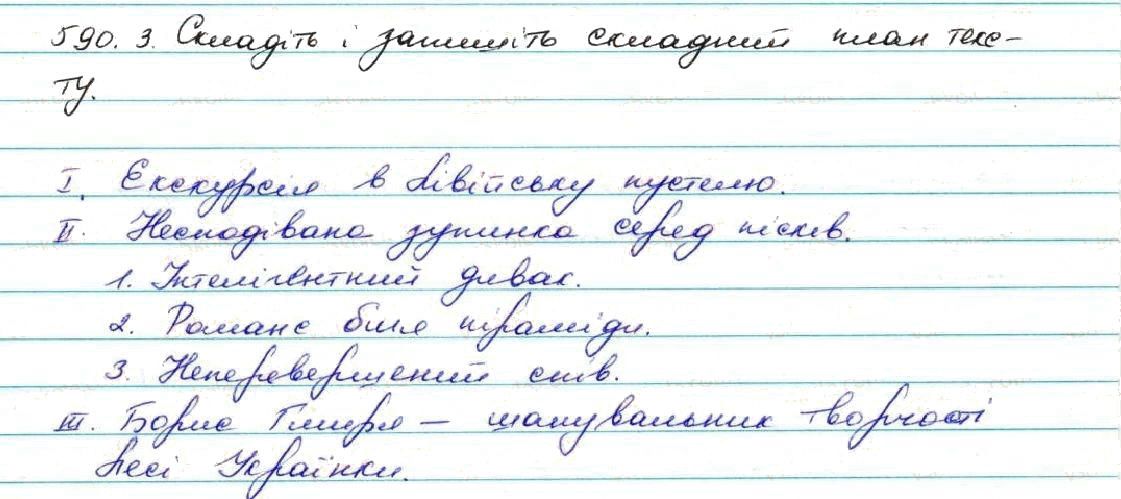 590. 3. Складіть і запишіть складний план текс-
ту.
I. Екскурсія в Лівійську пустелю.
II. Несподівана зупинка серед пісків.
1. Інтелігентний дивак.
2. Романс біля піраміди.
3. Неперевершений спів.
III. Борис Гмиря — шанувальник творчості
Лесі Українки.